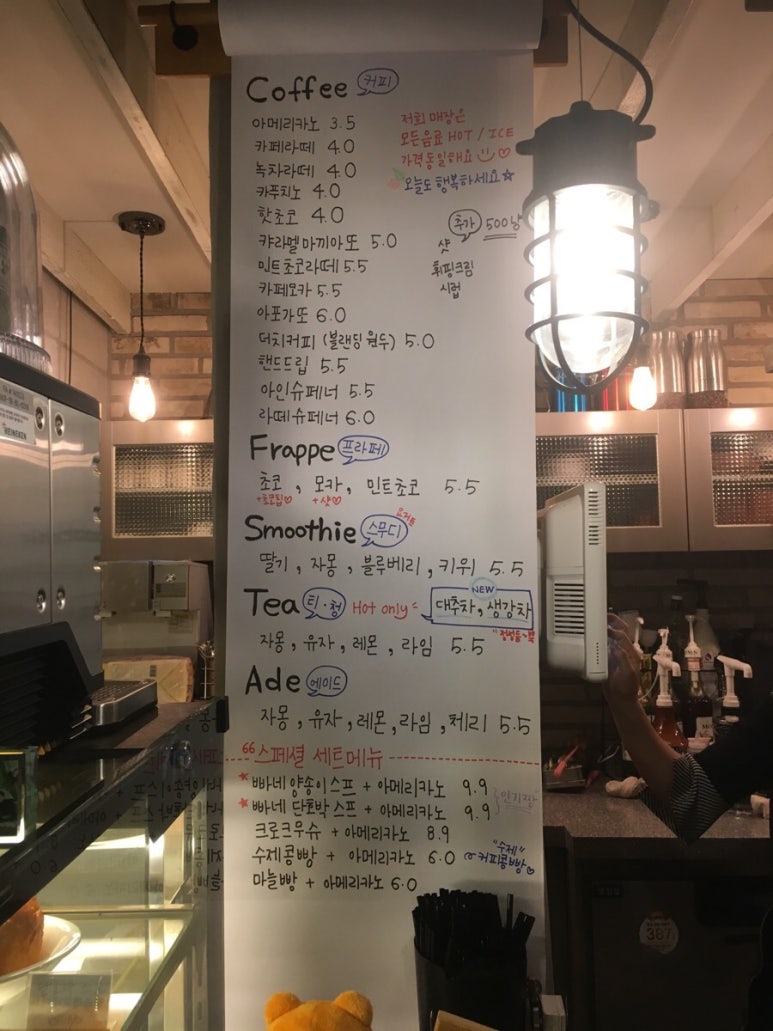 Coffee 커피
아메리카노 3.5
카페라떼 4.0
녹차라떼 4.0
카푸치노 4.0
핫초코 4.0
캬라멜마끼아또 5.0
민트초코라떼 5.5
카페모카 5.5
아포가또 6.0
더치커피 (블랜딩 원두) 5.0
핸드드립 5.5
아인슈페너 5.5
라떼슈페너 6.0
저희 매장은
모든음료 HOT / ICE
가격동일해요
오늘도 행복하세요
추가 500냥
샷
휘핑크림
시럽
Frappe 프라페
초코 , 모카 , 민트초코 5.5
+초코칩 +샷
Smoothie 스무디 요거트
딸기 , 자몽 , 블루베리 , 키위 5.5
Tea 티·청 Hot only NEW 대추차, 생강차
자몽 , 유자 , 레몬 , 라임 5.5
Ade 에이드
자몽 , 유자 , 레몬 , 라임 , 체리 5.5
스페셜 세트메뉴
빠네 양송이스프 + 아메리카노 9.9
빠네 단호박 스프 + 아메리카노 9.9
인기짱
크로크무슈 + 아메리카노 8.9
수제콩빵 + 아메리카노 6.0 "수제" 커피콩빵
마늘빵 + 아메리카노 6.0
387